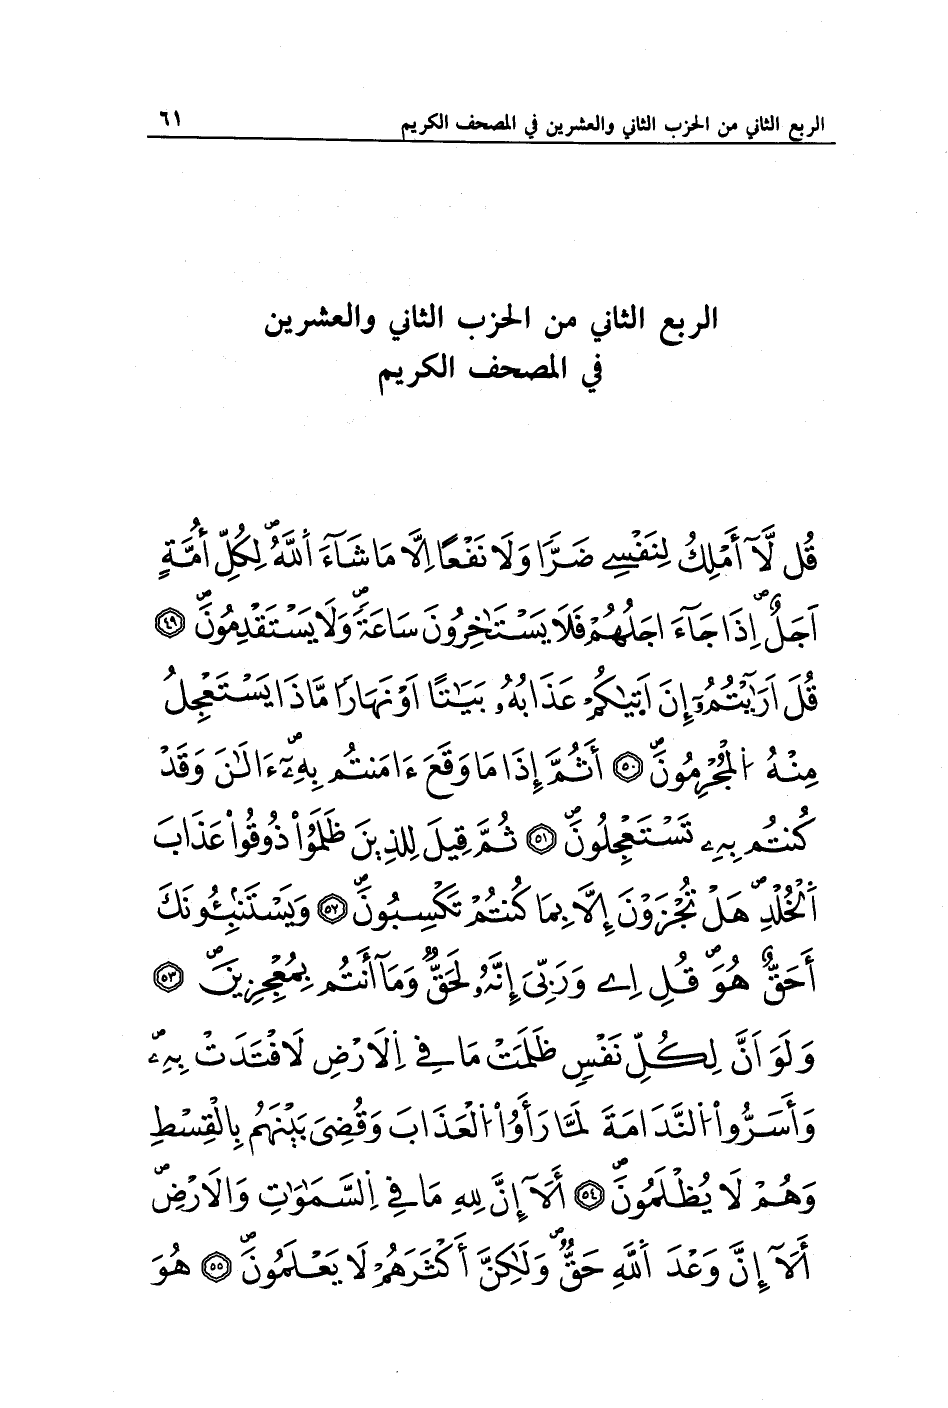 الربع الثاني من الحزب الثاني والعشرين في المصحف الكريم ٦١
الربع الثاني من الحزب الثاني والعشرين
في المصحف الكريم
قُل لَّآ أَمْلِكُ لِنَفْسِے ضَرّاٗ وَلَا نَفْعاً اِلَّا مَا شَآءَ اَ۬للَّهُۖ لِكُلِّ أُمَّةٍ
اَجَلٌۖ اِذَا جَآءَ اجَلُهُمْ فَلَا يَسْتَـٰٔخِرُونَ سَاعَةٗۖ وَلَا يَسْتَقْدِمُونَۖ ٤٩
قُلَ اَرَٰٓيْتُمُۥٓ إِنَ ا۪تَيٰكُمْ عَذَابُهُۥ بَيَٰتاً اَوْ نَهَاراٗ مَّاذَا يَسْتَعْجِلُ
مِنْهُ اُ۬لْمُجْرِمُونَۖ ٥٠ أَثُمَّ إِذَا مَا وَقَعَ ءَامَنتُم بِهِۦٓۖ ءَآلَٰنَ وَقَدْ
كُنتُم بِهِۦ تَسْتَعْجِلُونَۖ ٥١ ثُمَّ قِيلَ لِلذِينَ ظَلَمُواْ ذُوقُواْ عَذَابَ
اَ۬لْخُلْدِۖ هَلْ تُجْزَوْنَ إِلَّا بِمَا كُنتُمْ تَكْسِبُونَۖ ٥٢ وَيَسْتَنۢبِـُٔونَكَ
أَحَقٌّ هُوَۖ قُلِ اِے وَرَبِّيَ إِنَّهُۥ لَحَقّٞۖ وَمَآ أَنتُم بِمُعْجِزِينَۖ ٥٣
وَلَوَ اَنَّ لِكُلِّ نَفْسٖ ظَلَمَتْ مَا فِے اِ۬لَارْضِ لَافْتَدَتْ بِهِۦۖ
وَأَسَرُّواْ اُ۬لنَّدَامَةَ لَمَّا رَأَوُاْ اُ۬لْعَذَابَ وَقُضِيَ بَيْنَهُم بِالْقِسْطِ
وَهُمْ لَا يُظْلَمُونَۖ ٥٤ أَلَآ إِنَّ لِلهِ مَا فِے اِ۬لسَّمَٰوَٰتِ وَالَارْضِۖ
أَلَآ إِنَّ وَعْدَ اَ۬للَّهِ حَقّٞۖ وَلَٰكِنَّ أَكْثَرَهُمْ لَا يَعْلَمُونَۖ ٥٥ هُوَ